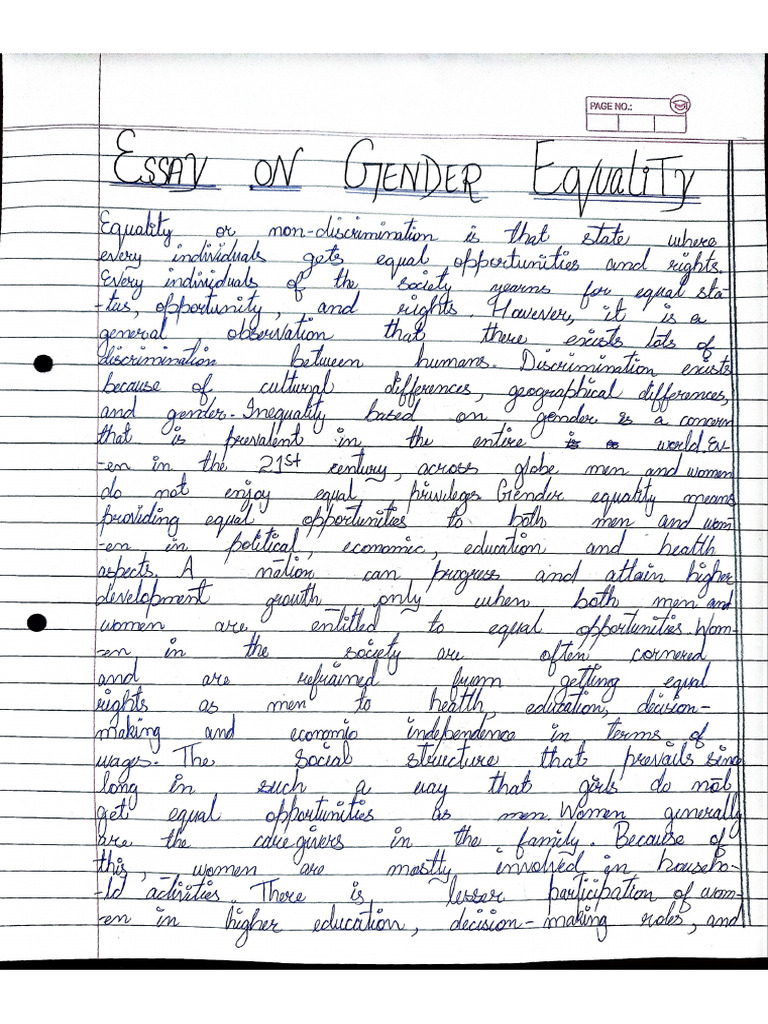 PAGE NO.:
ESSAY ON GENDER EQUALITY
Equality or non-discrimination is that state where
every individuals gets equal opportunities and rights.
Every individuals of the society yearns for equal sta-
-tus, opportunity, and rights. However, it is a
general observation that there exists lots of
discrimination between humans. Discrimination exists
because of cultural differences, geographical differences,
and gender. Inequality based on gender is a concern
that is prevalent in the entire world. Ev-
-en in the 21st century, across globe men and women
do not enjoy equal privileges. Gender equality means
providing equal opportunities to both men and wom-
-en in political, economic, education and health
aspects. A nation can progress and attain higher
development growth only when both men and
women are entitled to equal opportunities. Wom-
-en in the society are often cornered
and are refrained from getting equal
rights as men to health, education, decision-
making and economic independence in terms of
wages. The social structure that prevails since
long in such a way that girls do not
get equal opportunities as men. Women generally
are the caregivers in the family. Because of
this, women are mostly involved in househo-
-ld activities. There is lesser participation of wom-
-en in higher education, decision-making roles, and